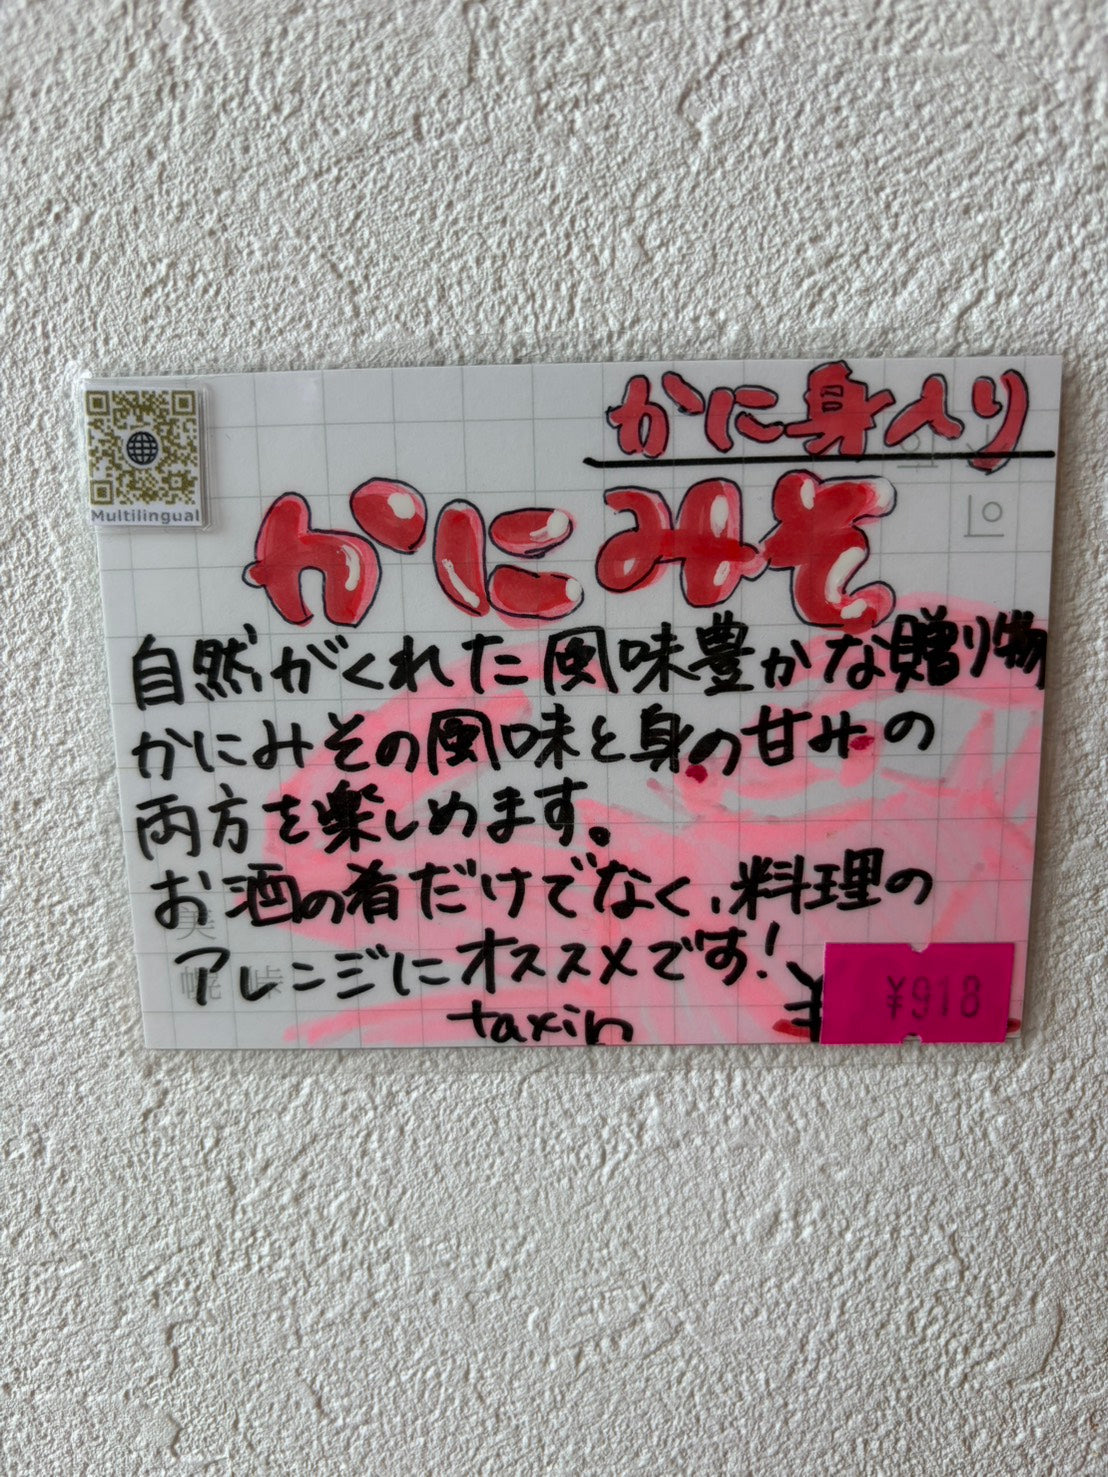 Multilingual
かに身入り
かにみそ
自然がくれた風味豊かな贈り物
かにみその風味と身の甘みの
両方を楽しめます。
お酒の肴だけでなく、料理の
アレンジにオススメです!
taxin
¥918